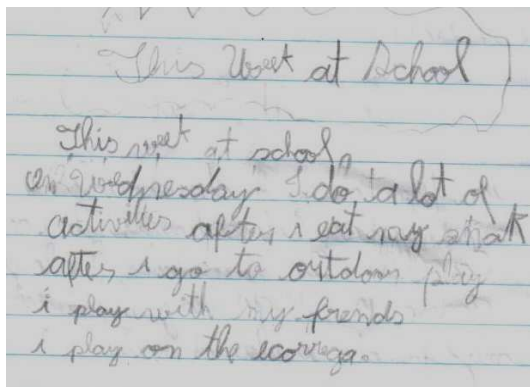 This Week at School
This week at school,
on Wednesday I do a lot of
activities after i eat my snak
after i go to outdoor play
i play with my frends
i play on the